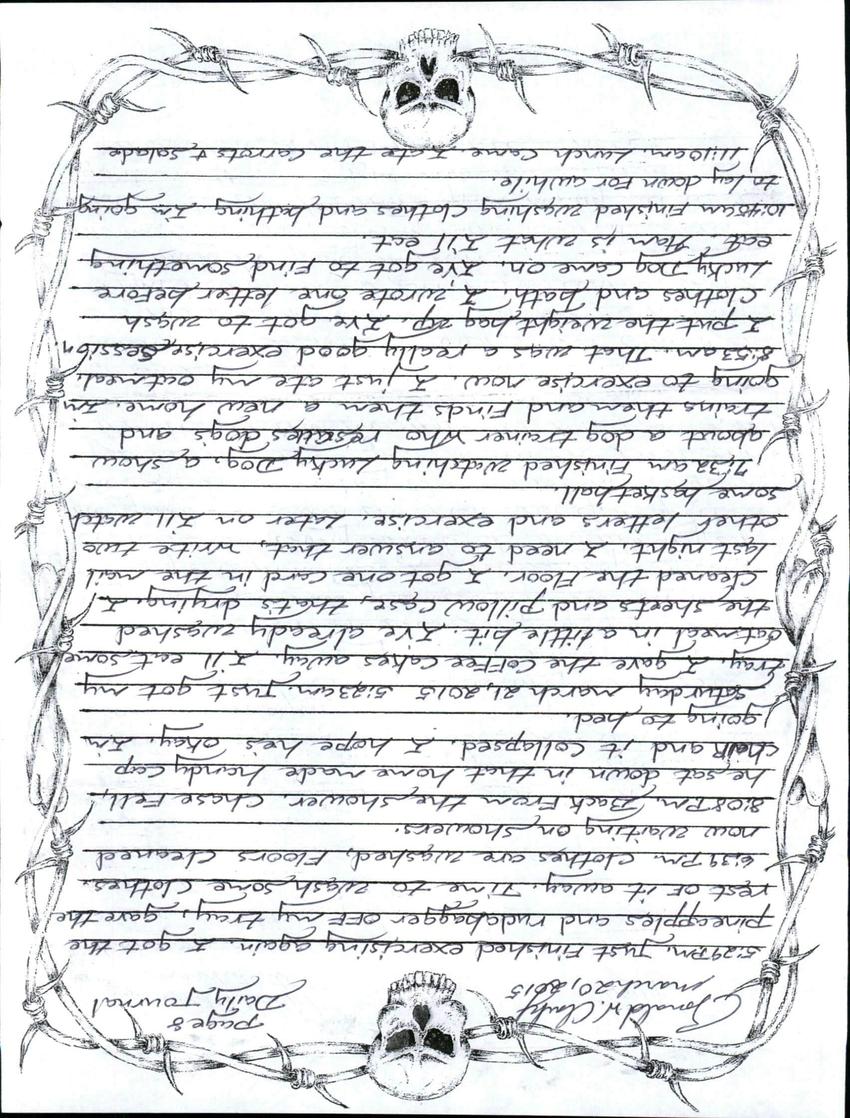 Ronald W. Clark Jr
page 8
march 20, 2015
Daily Journal
5:29 Pm. Just Finished exercising again. I got the
pineapples and rudabagger OFF my tray, gave the
rest OF it away. Time to wash some clothes.
6:39 Pm. Clothes are washed, Floors cleaned
now waiting on showers.
8:08 Pm. Back From the shower. Chase Fell,
he sat down in that home made handy cap
chair and it collapsed. I hope he's okay. I'm
going to bed.
Saturday march 21, 2015 5:23am. Just got my
tray. I gave the coFFee cakes away. I'll eat some
oatmeal in a little bit. I've already washed
the sheets and pillow case, that's drying. I
cleaned the Floor. I got one card in the mail
last night. I need to answer that, write two
other letters and exercise. Later on I'll watch
some basketball.
7:32am Finished watching Lucky Dog, a show
about a dog trainer who resques dog's and
trains them and Finds them a new home. I'm
going to exercise now. I just ate my oatmeal.
8:53am. That was a really good exercise session
I put the weight bag up. I've got to wash
clothes and bath. I wrote one letter before
Lucky Dog came on. I've got to Find something
eat. Ham is what I'll eat.
10:48am Finished washing clothes and bathing. I'm going
to lay down For awhile.
11:10am. Lunch came. I ate the carrots & salade